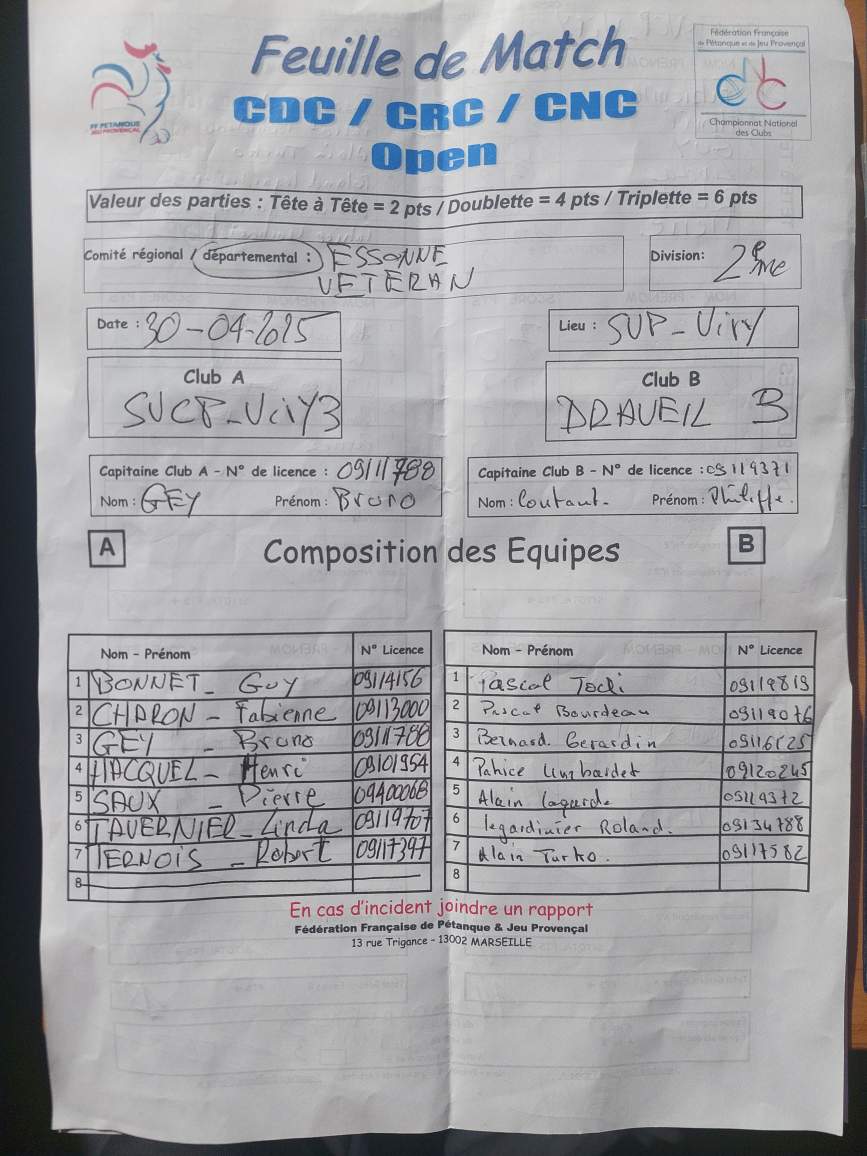 Feuille de Match
CDC / CRC / CNC
Open
FF PETANQUE
JEU PROVENÇAL
Fédération Française
de Pétanque et de Jeu Provençal
Championnat National
des Clubs
Valeur des parties : Tête à Tête = 2 pts / Doublette = 4 pts / Triplette = 6 pts
Comité régional / départemental : ESSONNE
VETERAN
Division: 2ème
Date : 30-04-2025
Lieu : SUP-Viry
Club A
SUCP-Viry3
Club B
DRAVEIL B
Capitaine Club A - N° de licence : 09111788
Nom : GEY Prénom : Bruno
Capitaine Club B - N° de licence : 09119371
Nom : Coutaut. Prénom : Philippe.
A
Composition des Equipes
B
Nom - Prénom N° Licence
1 BONNET - Guy 09114156
2 CHARON - Fabienne 09113000
3 GEY - Bruno 09111788
4 HACQUEL - Henri 09101954
5 SAUX - Pierre 09400068
6 TAVERNIER - Linda 09119707
7 TERNOIS - Robert 09117397
8
Nom - Prénom N° Licence
1 Pascal Jodi 09119819
2 Pascal Bourdeau 09119076
3 Bernard. Gerardin 09116125
4 Patrice Limbardet 09120245
5 Alain Lagarde 09119372
6 legardinier Roland. 09134788
7 Alain Turko. 09117582
8
En cas d'incident joindre un rapport
Fédération Française de Pétanque & Jeu Provençal
13 rue Trigance - 13002 MARSEILLE